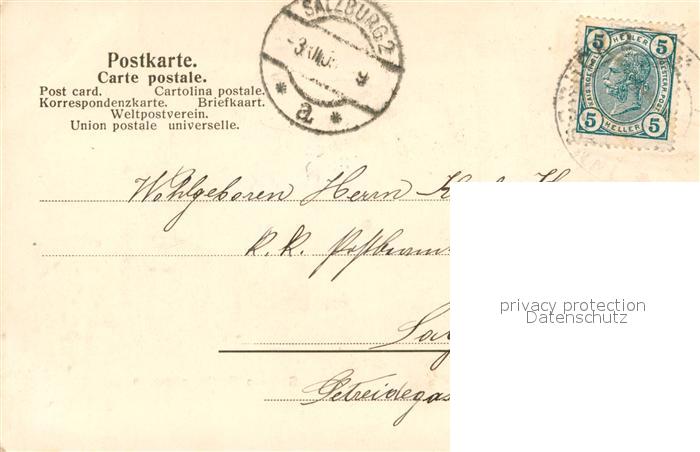 Postkarte.
Carte postale.
Post card. Cartolina postale.
Korrespondenzkarte. Briefkaart.
Weltpostverein.
Union postale universelle.
SALZBURG 2
9
* a *
5 HELLER 5
5 HELLER 5
Wohlgeboren Herrn
k. k. Postbeam
Getreidegas
privacy protection
Datenschutz